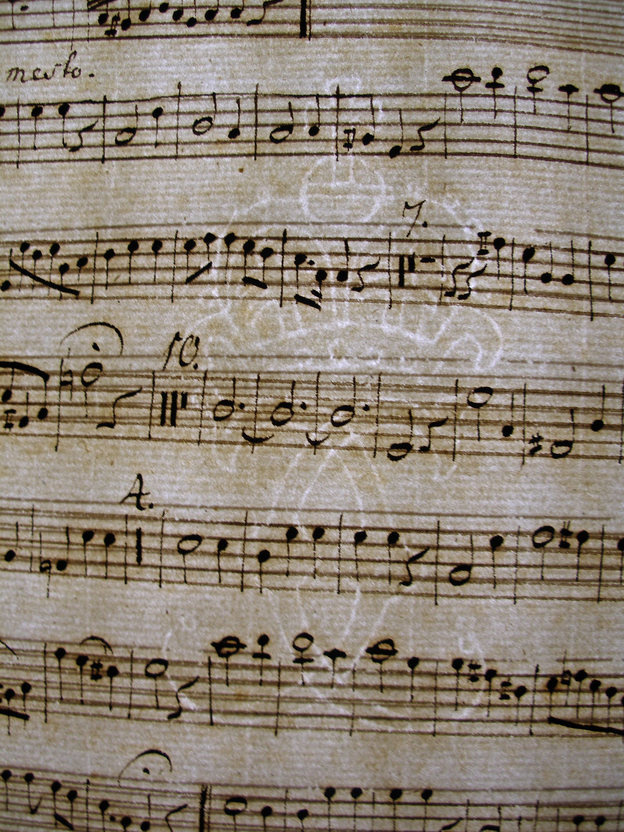 mesto.
7.
10.
4.